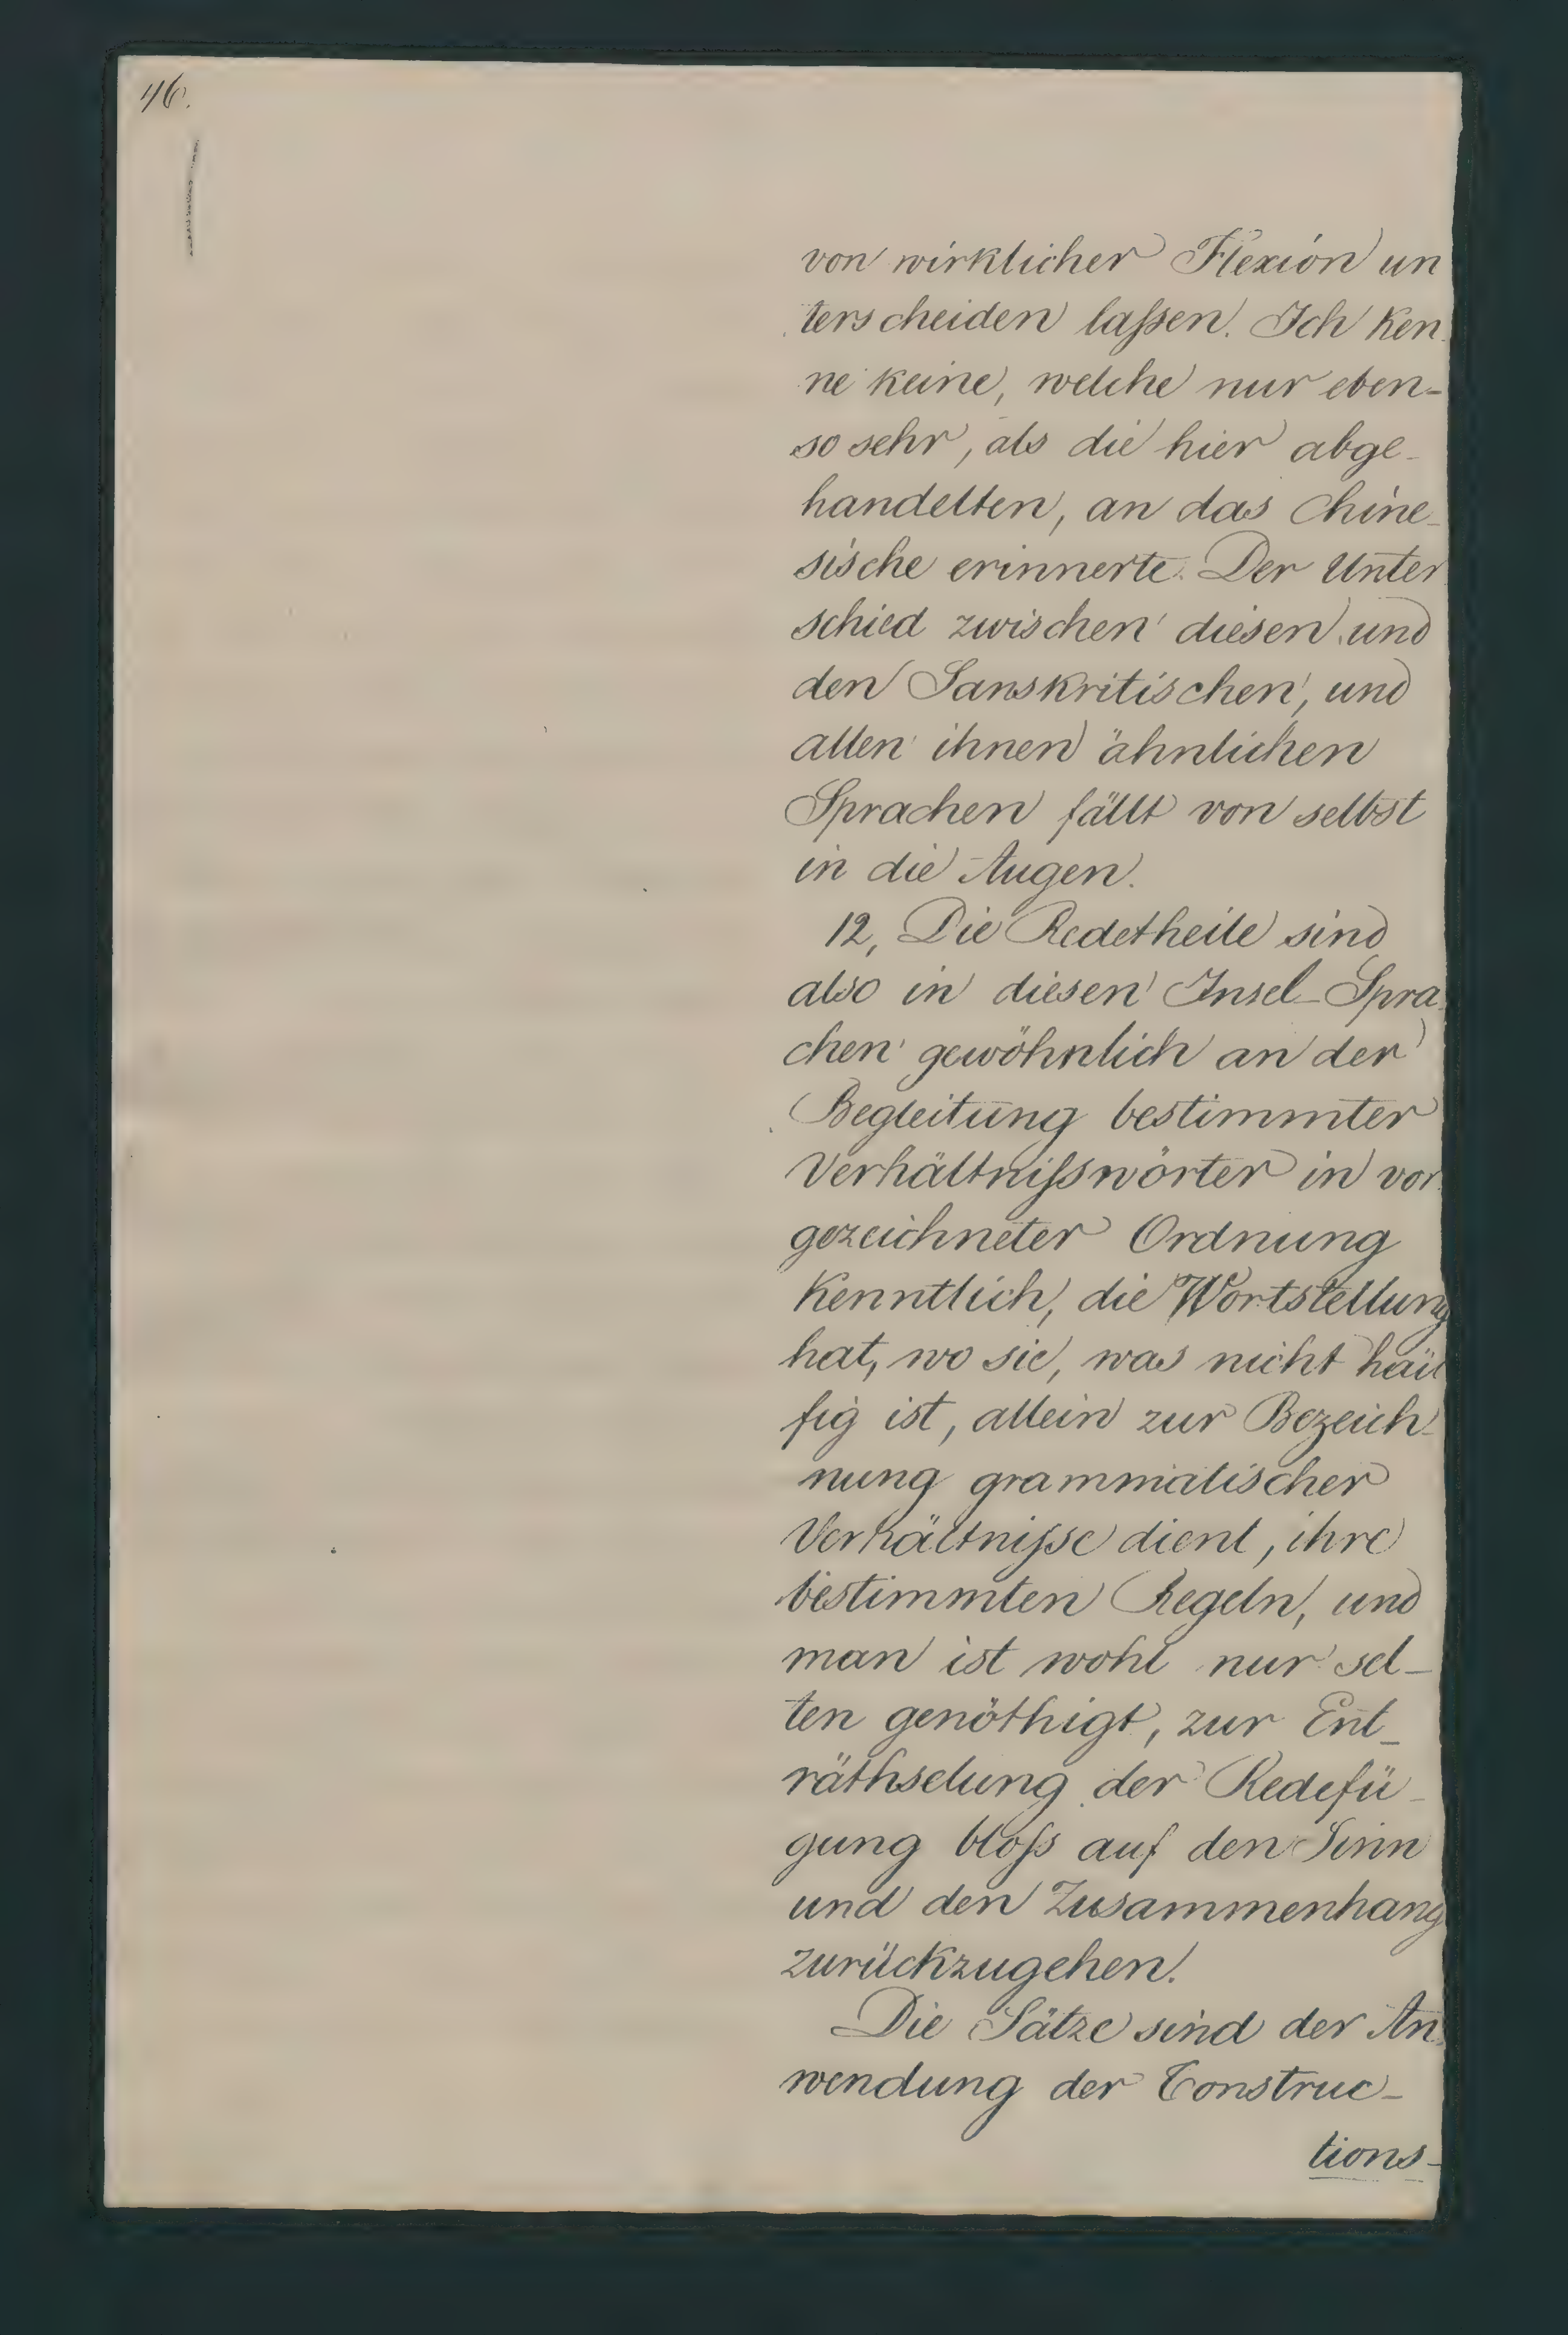 46.
von wirklicher Flexion un
terscheiden laſsen. Ich ken
ne keine, welche nur eben-
so sehr, als die hier abge-
handelten, an das Chine-
sische erinnerte. Der Unter
schied zwischen diesen und
den Sanskritischen, und
allen ihnen ähnlichen
Sprachen fällt von selbst
in die Augen.
12, Die Redetheile sind
also in diesen Insel-Spra
chen gewöhnlich an der
Begleitung bestimmter
Verhältniſswörter in vor
gezeichneter Ordnung
kenntlich, die Wortstellung
hat, wo sie, was nicht häu
fig ist, allein zur Bezeich-
nung grammatischer
Verhältniſse dient, ihre
bestimmten Regeln, und
man ist wohl nur sel-
ten genöthigt, zur Ent-
räthselung der Redefü-
gung bloſs auf den Sinn
und den Zusammenhang
zurückzugehen.
Die Sätze sind der An
wendung der Construc-
tions-